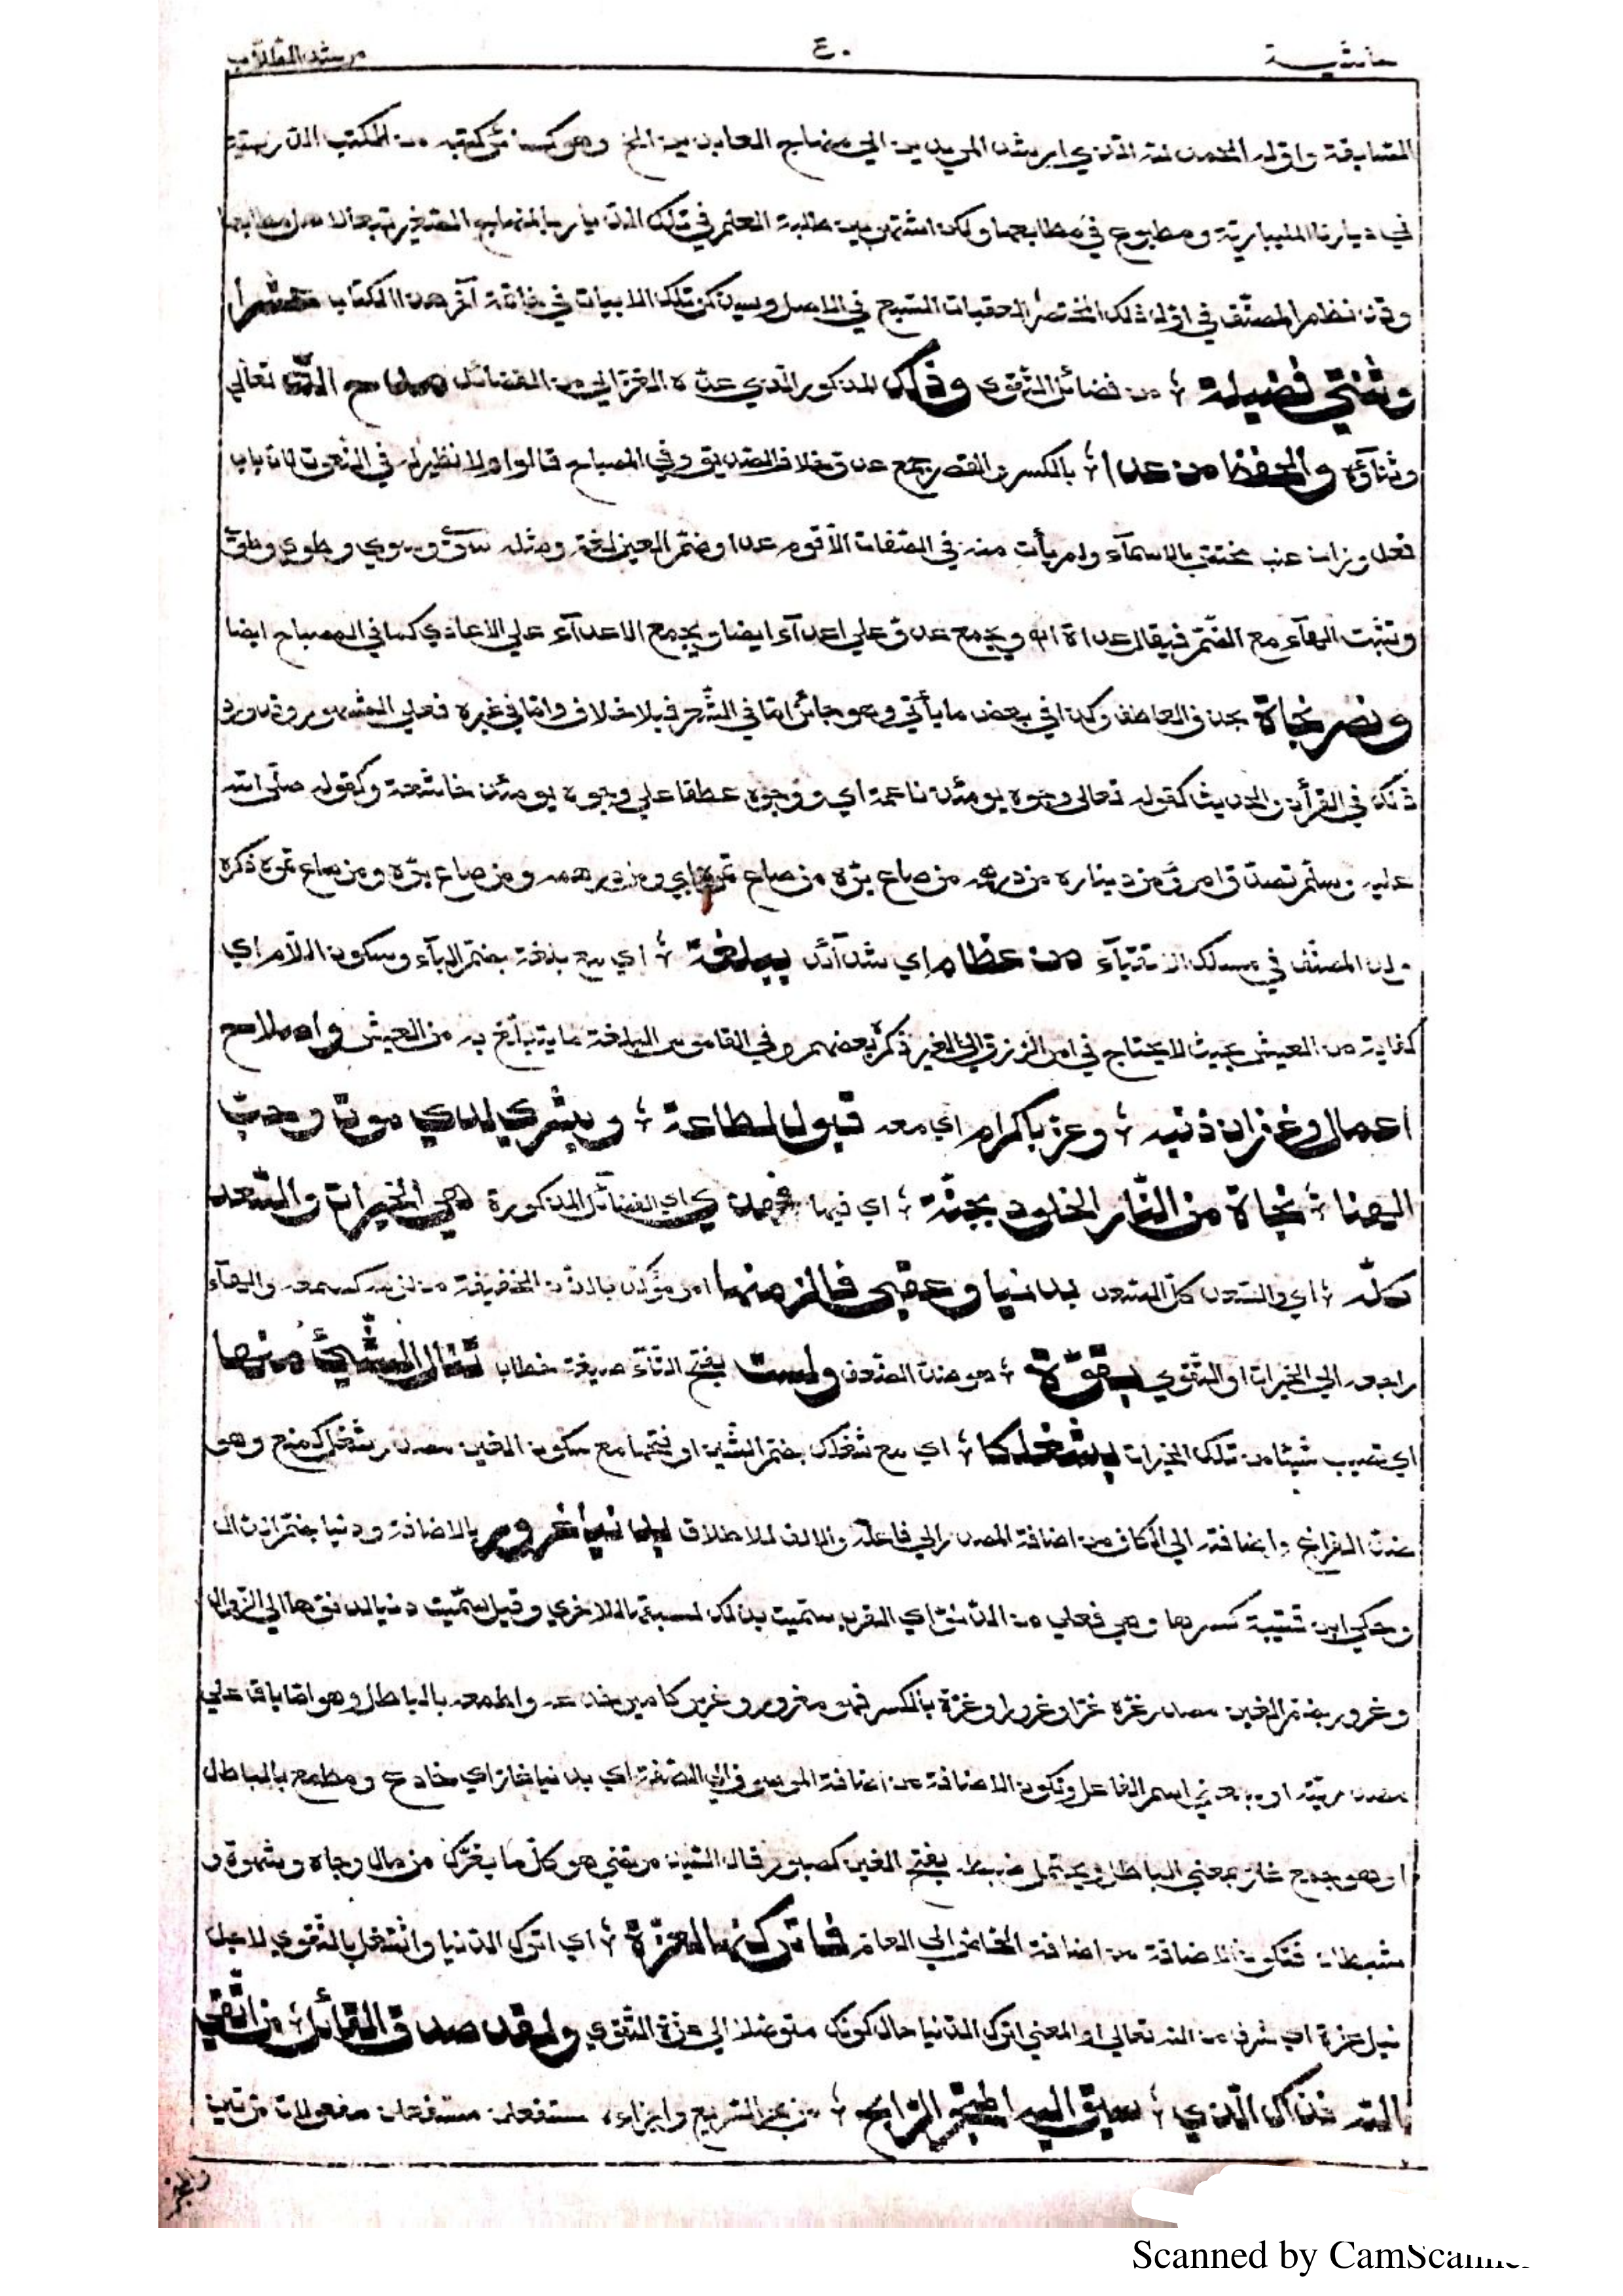 حاشية ٤٠ مرشد الطلاب
السابقة واوله الحمد لله الذي ارشد المريدين الى منهاج العابدين الخ وهو كسائر كتبه من الكتب
في ديارنا المليبارية ومطبوع في مطابعها ولكن اشتهر بين طلبة العلم في تلك الديار بالمنهاج الصغير تبعا لاهل مطابعها
وقد نظم المصنف في اول ذلك المختصر العقبات السبع في الاصل وسيذكر تلك الابيات في خاتمة آخر هذا الكتاب
وثنتى فضيلة ؛ من فضائل التقوى وذلك المذكور الذي عده الغزالي من الفضائل مداح الله تعالى
وثناؤه والحفظ من عدا ؛ بالكسر والقصر جمع عدو خلاف الصديق وفي المصباح قالوا ولا نظير له في النعوت لان باب
فعل وزان عنب مختص بالاسماء ولم يأت منه في الصفات الا قوم عدا وضم العين لغة ومثله سوى وسوى وطوى وطوى
وتثبت الهاء مع الضم فيقال عداة اه ويجمع عدو على اعداء ايضا ويجمع الاعداء على الاعادي كما في المصباح ايضا
ونصر نجاة بحذف العاطف وكذا في بعض ما يأتي وهو جائز اما في الشعر فبلا خلاف واما في غيره فعلى المشهور وقد ورد
ذلك في القرآن والحديث كقوله تعالى وجوه يومئذ ناعمة اي ووجوه عطفا على وجوه يومئذ خاشعة وكقوله صلى الله
عليه وسلم تصدق امرؤ من ديناره من درهمه من صاع بره من صاع تمره اي ومن درهمه ومن صاع بره ومن صاع تمره ذكره
المصنف في مسلك الاتقياء من عظام اي شدائد ببلغة ؛ اي مع بلغة بضم الباء وسكون اللام اي
كفاية من العيش بحيث لا يحتاج في امر الرزق الى الغير ذكره بعضهم وفي القاموس البلغة ما يتبلغ به من العيش واصلاح
اعمال وغفران ذنبه ؛ وعز باكرام اي معه قبول لطاعة ؛ وبشرى لدى موت وحب
الهنا ؛ نجاة من النار الخلود بجنة ؛ اي فيها فهذي اي الفضائل المذكورة هي الخيرات والسعد
كله ؛ اي والسعد كل السعد بدنيا وعقبى فالزمنها امر مؤكد بالنون الخفيفة من لزم كسمع والهاء
راجعه الى الخيرات او التقوى بقوة ؛ هو ضد الضعف ولست بفتح التاء صيغة خطاب تنال الشيئ منها
اي تصيب شيئا من تلك الخيرات بشغلكا ؛ اي مع شغلك بضم الشين او فتحها مع سكون الغين مصدر شغلك منع وهو
ضد الفراغ واضافته الى الكاف من اضافة المصدر الى فاعله والالف للاطلاق بدنيا غرور بالاضافة ودنيا بضم الدال
وحكى ابن قتيبة كسرها وهي فعلى من الدنو اي القرب سميت بذلك لسبقها للاخرى وقيل سميت دنيا لدنوها الى الزوال
وغرور بضم الغين مصدر غره غرا وغرورا وغرة بالكسر فهو مغرور وغرير كامير خدعه واطمعه بالباطل وهو اما باق على
مصدريته او بمعنى اسم الفاعل وتكون الاضافة من اضافة الموصوف الى الصفة اي بدنيا غار اي خادع ومطمع بالباطل
او هو جمع غار بمعنى الباطل ويحتمل ضبطه بفتح الغين كصبور قال السيد مرتضى هو كل ما يغرك من مال وجاه وشهوة و
شيطان فتكون الاضافة من اضافة الخاص الى العام فاتركنها لعزة ؛ اي اترك الدنيا واشتغل بالتقوى لاجل
نيل عزة اي شرف عند الله تعالى او المعنى اترك الدنيا حال كونك متوصلا الى عزة التقوى ولقد صدق القائل ؛ من اتقى
الله فذاك الذي ؛ سيق اليه المتجر الرابح ؛ من بحر السريع واجزاءه مستفعلن مستفعلن مفعولات مرتين